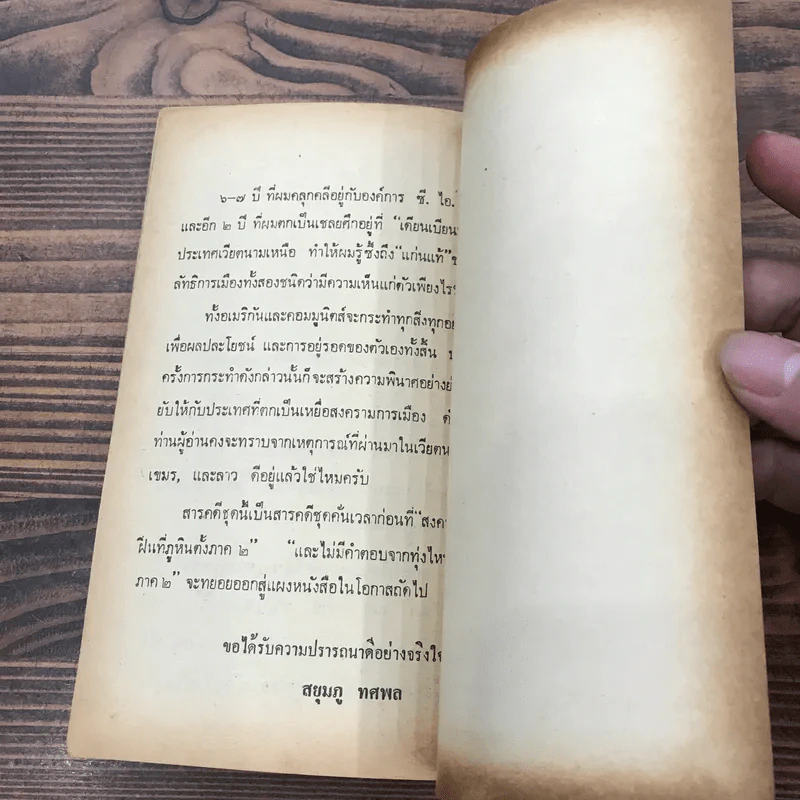 ๖-๗ ปี ที่ผมคลุกคลีอยู่กับองค์การ ซี. ไอ.
และอีก ๒ ปี ที่ผมตกเป็นเชลยศึกอยู่ที่ “เดียนเบียน
ประเทศเวียตนามเหนือ ทำให้ผมรู้ซึ้งถึง“แก่นแท้”
ลัทธิการเมืองทั้งสองชนิดว่ามีความเห็นแก่ตัวเพียงไร
ทั้งอเมริกันและคอมมูนิตส์จะกระทำทุกสิ่งทุกอย
เพื่อผลประโยชน์ และการอยู่รอดของตัวเองทั้งสิ้น
ครั้งการกระทำดังกล่าวนั้นก็จะสร้างความพินาศอย่าง
ยับให้กับประเทศที่ตกเป็นเหยื่อสงครามการเมือง
ท่านผู้อ่านคงจะทราบจากเหตุการณ์ที่ผ่านมาในเวียต
เขมร, และลาว ดีอยู่แล้วใช่ไหมครับ
สารคดีชุดนี้เป็นสารคดีชุดคั่นเวลาก่อนที่“สงครา
ฝิ่นที่ภูหินตั้งภาค ๒” “และไม่มีคำตอบจากทุ่งไห
ภาค ๒” จะทยอยออกสู่แผงหนังสือในโอกาสถัดไป
ขอได้รับความปรารถนาดีอย่างจริงใจ
สยุมภู ทศพล